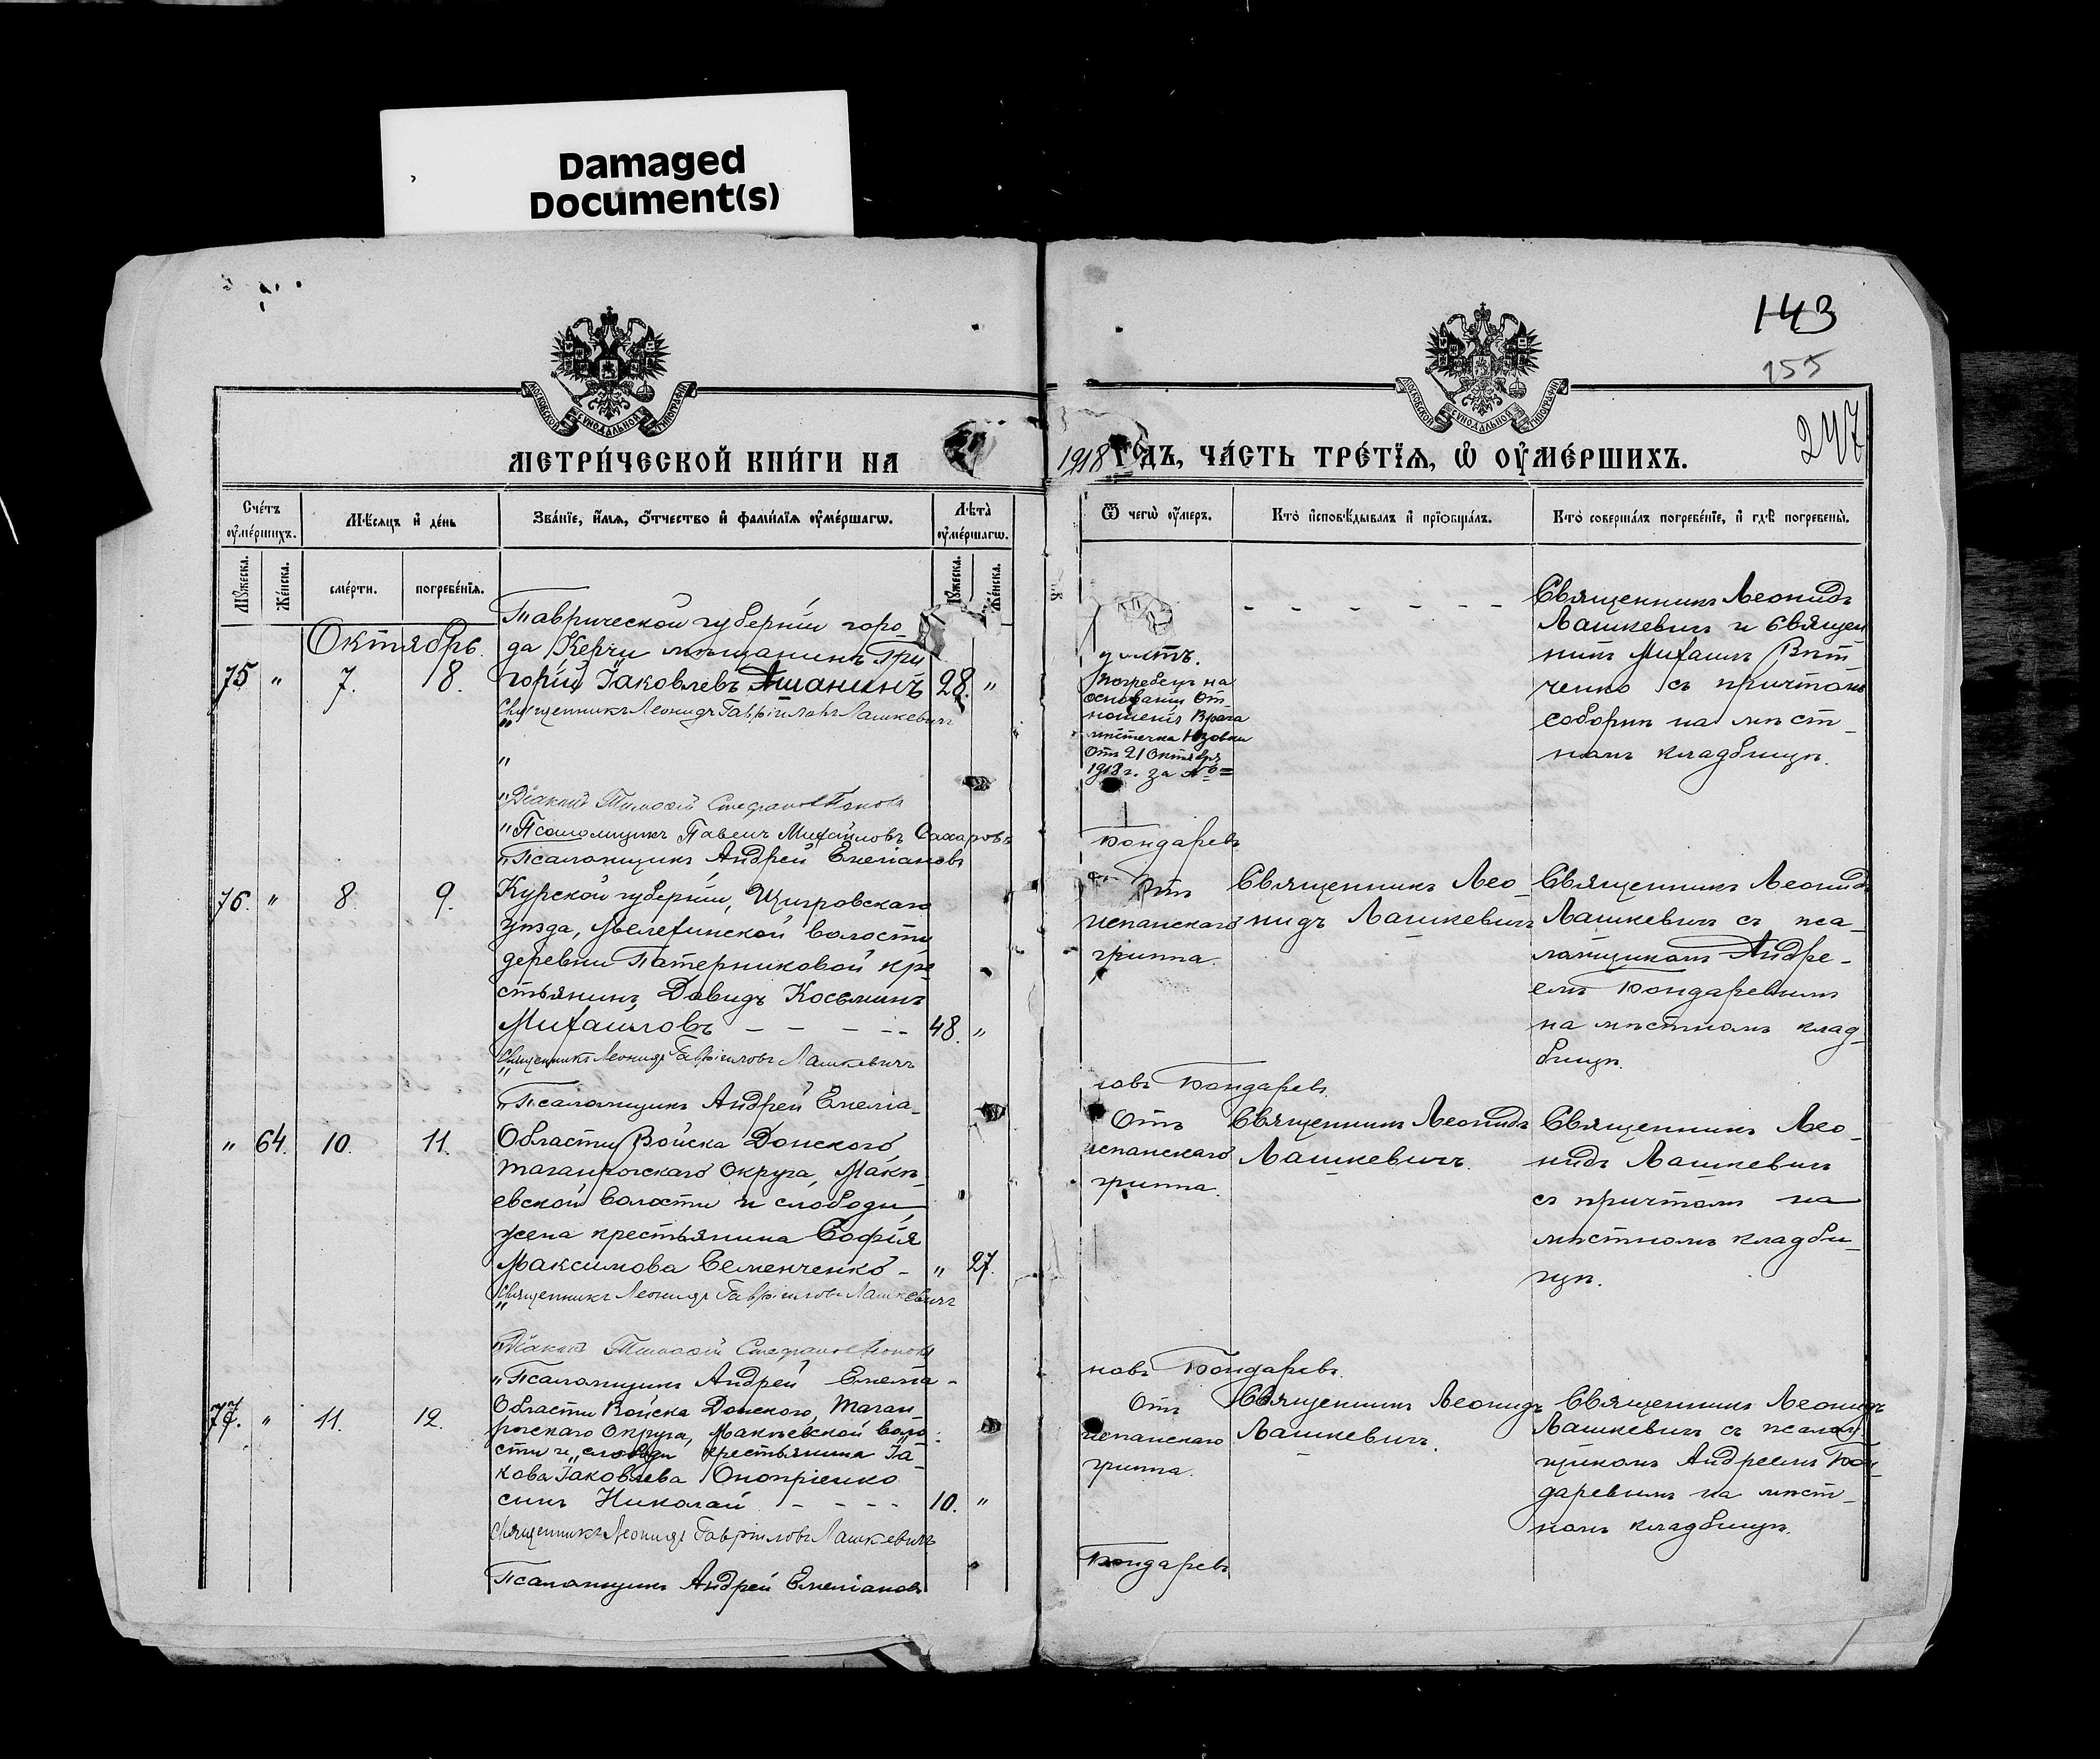 Damaged
Document(s)
143
155
247
МОСКОВСКОЙ СУНОДАЛЬНОЙ ТИПОГРАФІИ
МОСКОВСКОЙ СУНОДАЛЬНОЙ ТИПОГРАФІИ
МЕТРИ́ЧЕСКОЙ КНИ́ГИ НА 1918 ГОДЪ, ЧА́СТЬ ТРЕ́ТЇѦ, Ѡ ОУ҆МЕ́РШИХЪ.
Сче́тъ оу҆ме́ршихъ.
Мꙋ́жеска.
Же́нска.
Мѣ́сяцъ и҆ де́нь
сме́рти.
погребе́нїя.
Зва́нїе, и҆́мя, ѻ҆́тчество и҆ фами́лїя оу҆ме́ршагѡ.
Лѣ́та̀ оу҆ме́ршагѡ.
Мꙋ́жеска.
Же́нска.
Ѿ чегѡ̀ оу҆́меръ.
Кто̀ и҆сповѣ́дывалъ и҆ прїѻбща́лъ.
Кто̀ соверша́лъ погребе́нїе, и҆ гдѣ̀ погребены̀.
Октябрь.
75 " 7. 8.
Таврической губерніи горо-
да Керчи мѣщанинъ Гри
горій Іаковлевъ Ашанинъ 28. "
Священникъ Леонидъ Гавріиловъ Лашкевичъ
"
"
"Діаконъ Тимоѳій Стефановъ Поповъ
"Псаломщикъ Павелъ Михайловъ Сахаровъ
"Псаломщикъ Андрей Емеліановъ
Погребенъ на
основаніи От
ношенія Врача
мѣстечка Юзовки
отъ 21 Октября
1918 г. за №=
Бондаревъ
- - - - - - -
Священникъ Леонидъ
Лашкевичъ и Священ
никъ Михаилъ Вит
ченко съ причтомъ
соборнѣ на мѣст-
номъ кладбищѣ.
76. " 8. 9.
Курской губерніи, Щигровскаго
уѣзда, Мелехинской волости
деревни Патерниковой кре
стьянинъ, Давидъ Косьминъ
Михаиловъ - - - - - 48. "
Священникъ Леонидъ Гавріиловъ Лашкевичъ
"
"Псаломщикъ Андрей Емеліа-
Отъ
испанскаго
гриппа.
новъ Бондаревъ.
Священникъ Лео-
нидъ Лашкевичъ
Священникъ Леонидъ
Лашкевичъ съ пса-
ломщикомъ Андре-
емъ Бондаревымъ
на мѣстномъ клад-
бищѣ.
" 64. 10. 11.
Области Войска Донского,
Таганрогскаго Округа, Макѣ-
евской волости и слободы,
жена крестьянина Софія
Максимова Семенченко - " 27.
Священникъ Леонидъ Гавріиловъ Лашкевичъ
"
"Діаконъ Тимоѳій Стефановъ Поповъ
"Псаломщикъ Андрей Емеліа-
Отъ
испанскаго
гриппа.
новъ Бондаревъ.
Священникъ Леонидъ
Лашкевичъ.
Священникъ Лео-
нидъ Лашкевичъ
съ причтомъ на
мѣстномъ кладби-
щѣ.
77. " 11. 12.
Области Войска Донского, Таган
рогскаго Округа, Макѣевской воло-
сти и слободы крестьянина Іа-
кова Іаковлева Оноприенко
сынъ Николай - - - - 10. "
Священникъ Леонидъ Гавріиловъ Лашкевичъ
Псаломщикъ Андрей Емеліановъ
Отъ
испанскаго
гриппа.
Бондаревъ
Священникъ Леонидъ
Лашкевичъ.
Священникъ Леонидъ
Лашкевичъ съ псалом
щикомъ Андреемъ Бон-
даревымъ на мѣст-
номъ кладбищѣ.